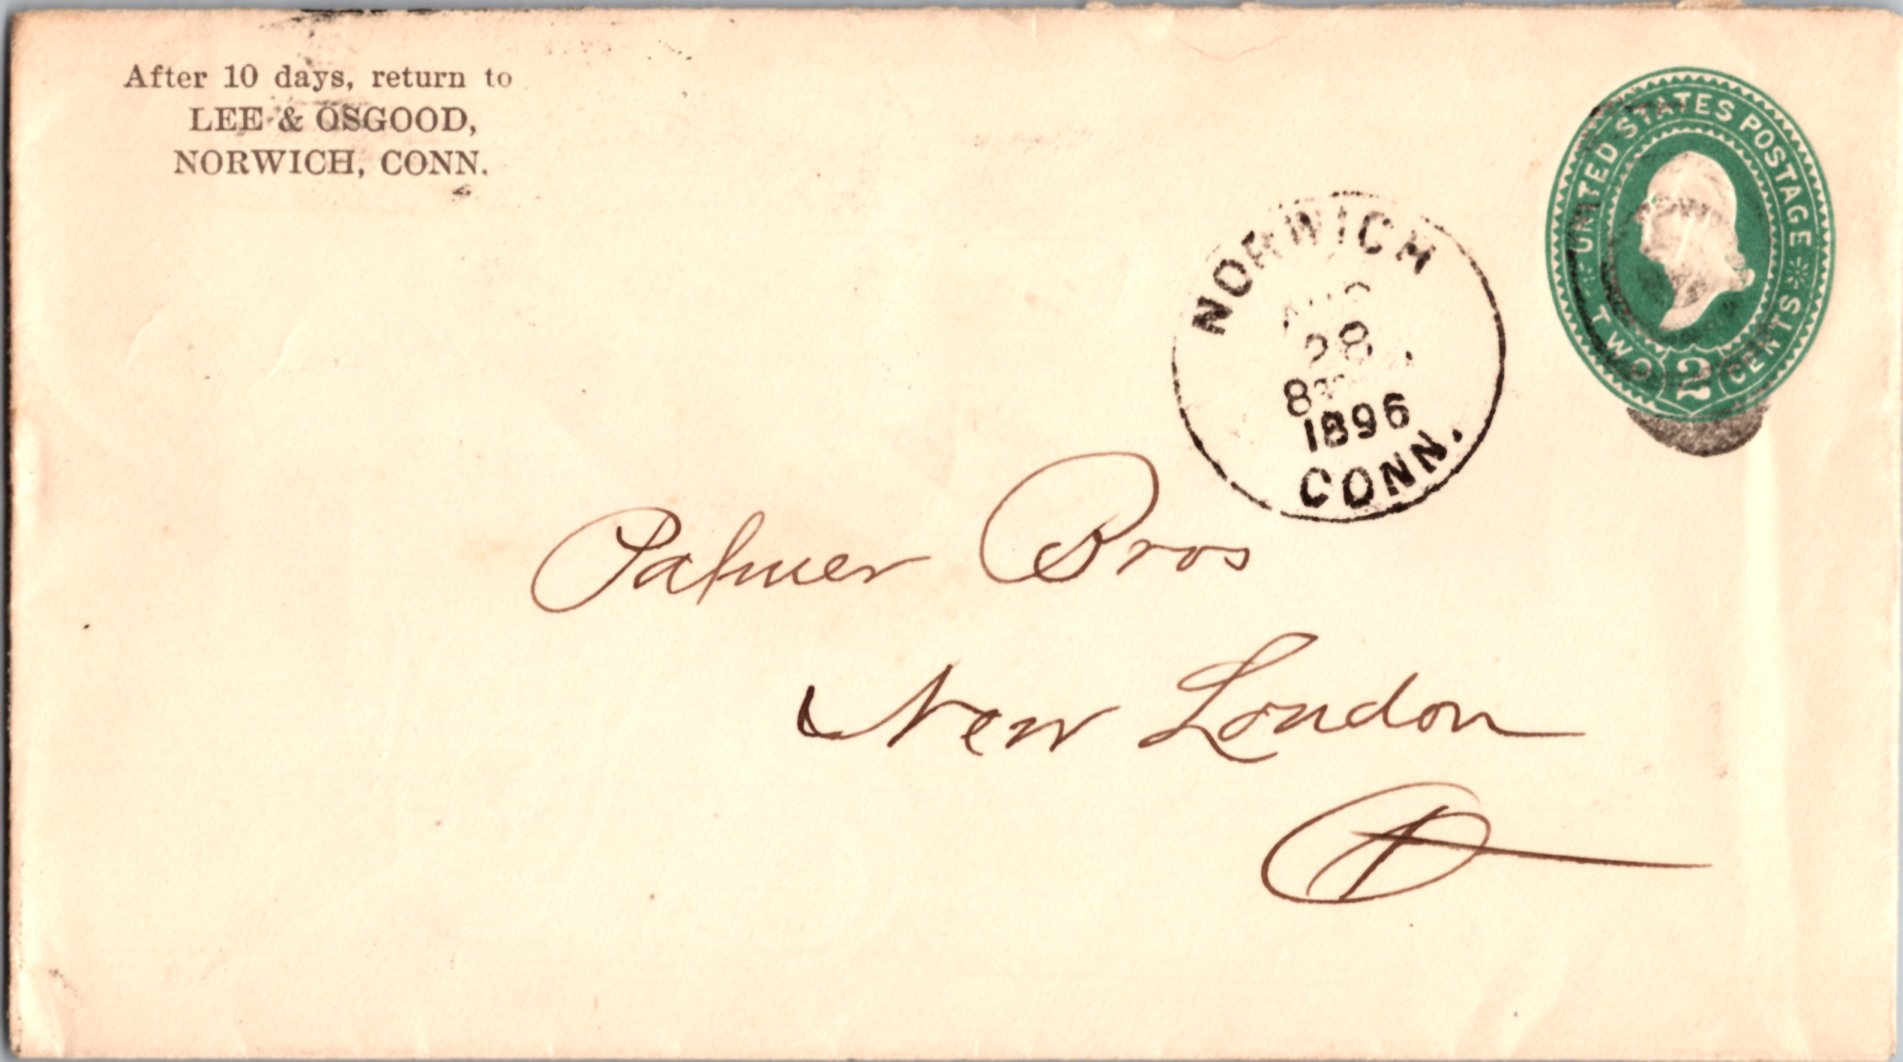 After 10 days, return to
LEE & OSGOOD,
NORWICH, CONN.
UNITED STATES POSTAGE
TWO 2 CENTS
NORWICH
AUG
28
8
1896
CONN.
Palmer Bros
New London
Ct